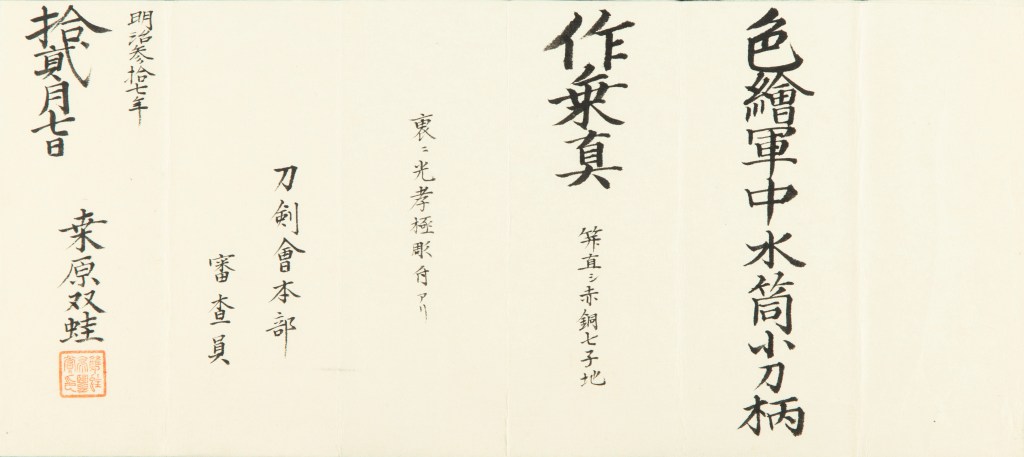 色繪軍中水筒小刀柄
作乗真
笄直シ赤銅七子地
裏ニ光孝極彫身アリ
刀剣會本部
審査員
明治参拾七年
拾貳月七日
桒原双蛙